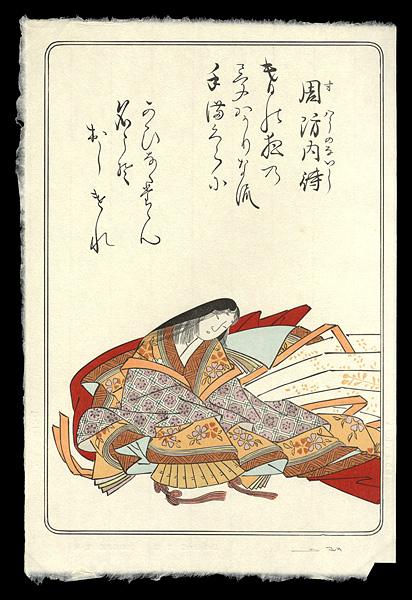 周防内侍
すはうのないし
春の夜乃
夢はかりな流
手満くら尓
かひなくたゝん
名こそ
おしけれ